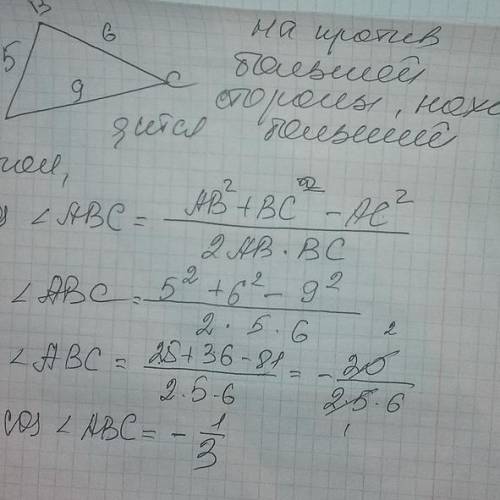 B
6
5
9
C
на против
большей
стороны, нахо
дится больший
угол,
∠ABC = AB² + BC² - AC² / 2AB · BC
∠ABC = 5² + 6² - 9² / 2 · 5 · 6
∠ABC = 25 + 36 - 81 / 2 · 5 · 6 = - 20 / 2 · 5 · 6
2
1
cos ∠ABC = - 1/3